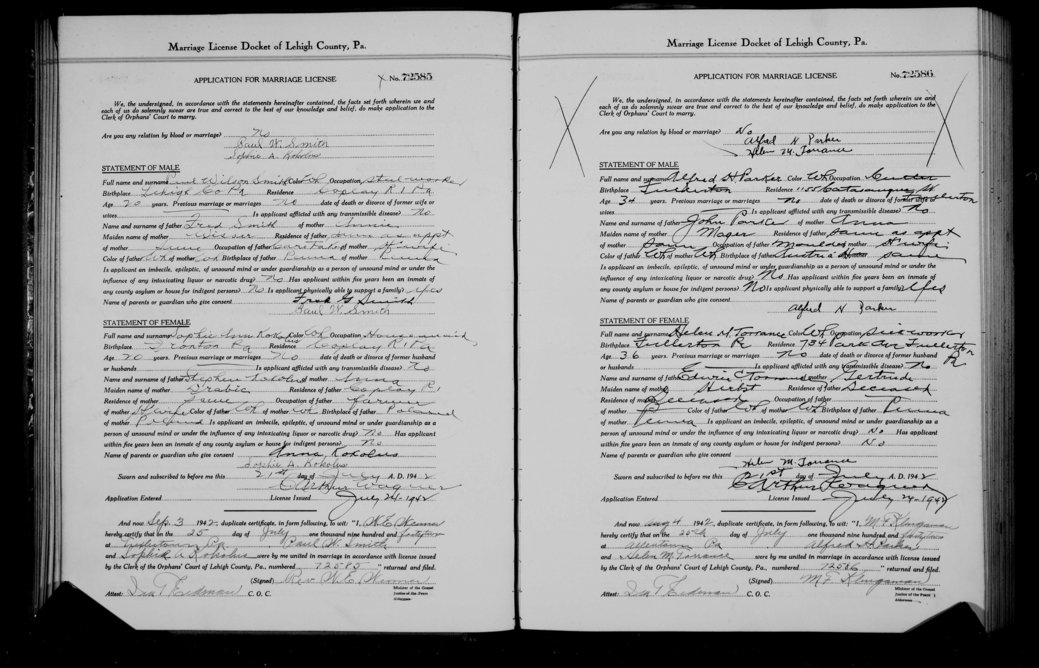 Marriage License Docket of Lehigh County, Pa.
APPLICATION FOR MARRIAGE LICENSE No. 72585
We, the undersigned, in accordance with the statements hereinafter contained, the facts set forth wherein we and
each of us do solemnly swear are true and correct to the best of our knowledge and belief, do make application to the
Clerk of Orphans' Court to marry.
Are you any relation by blood or marriage? No
Paul W. Smith
Sophie A. Kokolus
STATEMENT OF MALE
Full name and surname Paul Wilson Smith Color Wh Occupation Steel worker
Birthplace Lehigh Co Pa Residence Coplay R 1 Pa
Age 20 years. Previous marriage or marriages No date of death or divorce of former wife or
wives Is applicant afflicted with any transmissible disease? No
Name and surname of father Fred Smith of mother Annie
Maiden name of mother Residence of father same as appt
of mother Same Occupation of father Caretaker of mother H'wife
Color of father Wh of mother Wh Birthplace of father Penna of mother Penna
Is applicant an imbecile, epileptic, of unsound mind or under guardianship as a person of unsound mind or under the
influence of any intoxicating liquor or narcotic drug? No Has applicant within five years been an inmate of
any county asylum or house for indigent persons? No Is applicant physically able to support a family? Yes
Name of parents or guardian who give consent Fred G Smith
Paul W. Smith
STATEMENT OF FEMALE
Full name and surname Sophie Ann Kokolus Color Wh Occupation Housemaid
Birthplace Ironton Pa Residence Coplay R 1 Pa
Age 20 years. Previous marriage or marriages No date of death or divorce of former husband
or husbands Is applicant afflicted with any transmissible disease? No
Name and surname of father Stephen Kokolus of mother Anna
Maiden name of mother Residence of father Coplay R 1
Residence of mother Same Occupation of father Farmer
of mother H'wife Color of father Wh of mother Wh Birthplace of father Poland
of mother Poland Is applicant an imbecile, epileptic, of unsound mind or under guardianship as a
person of unsound mind or under the influence of any intoxicating liquor or narcotic drug? No Has applicant
within five years been an inmate of any county asylum or house for indigent persons? No
Name of parents or guardian who give consent Anna Kokolus
Sophie A. Kokolus
Sworn and subscribed to before me this 21st day of July A. D. 1942
C Arthur Wagner
Application Entered License Issued July 24-1942
And now Sep. 3 1942, duplicate certificate, in form following, to wit: "I,
hereby certify that on the 25 day of July one thousand nine hundred and forty two
at Pa Paul W. Smith
and Sophie A Kokolus were by me united in marriage in accordance with license issued
by the Clerk of the Orphans' Court of Lehigh County, Pa., numbered 72585 " returned and filed.
(Signed) Rev
Minister of the Gospel
Justice of the Peace
Alderman
Attest: Ira T Erdman C. O. C.
Marriage License Docket of Lehigh County, Pa.
APPLICATION FOR MARRIAGE LICENSE No. 72586
We, the undersigned, in accordance with the statements hereinafter contained, the facts set forth wherein we and
each of us do solemnly swear are true and correct to the best of our knowledge and belief, do make application to the
Clerk of Orphans' Court to marry.
Are you any relation by blood or marriage? No
Alfred H Parker
Helen M. Torrance
STATEMENT OF MALE
Full name and surname Alfred H Parker Color Wh Occupation
Birthplace Fullerton Residence 1155 Catasauqua
Fullerton
Age 34 years. Previous marriage or marriages No date of death or divorce of former wife or
wives Is applicant afflicted with any transmissible disease? No
Name and surname of father John Parker of mother Anna
Maiden name of mother Mager Residence of father Same as appt
of mother Same Occupation of father Moulder of mother H'wife
Color of father Wh of mother Wh Birthplace of father Austria of mother Same
Is applicant an imbecile, epileptic, of unsound mind or under guardianship as a person of unsound mind or under the
influence of any intoxicating liquor or narcotic drug? No Has applicant within five years been an inmate of
any county asylum or house for indigent persons? No Is applicant physically able to support a family? Yes
Name of parents or guardian who give consent
Alfred H Parker
STATEMENT OF FEMALE
Full name and surname Helen M Torrance Color Wh Occupation Silk worker
Birthplace Fullerton Pa Residence 734 Park Ave Fullerton
Pa
Age 36 years. Previous marriage or marriages No date of death or divorce of former husband
or husbands Is applicant afflicted with any transmissible disease? No
Name and surname of father Edwin C Torrance of mother Gertrude
Maiden name of mother Residence of father Deceased
Residence of mother Deceased Occupation of father
of mother Color of father Wh of mother Wh Birthplace of father Penna
of mother Penna Is applicant an imbecile, epileptic, of unsound mind or under guardianship as a
person of unsound mind or under the influence of any intoxicating liquor or narcotic drug? No Has applicant
within five years been an inmate of any county asylum or house for indigent persons? No
Name of parents or guardian who give consent
Helen M. Torrance
Sworn and subscribed to before me this 21st day of July A. D. 1942
C Arthur Wagner
Application Entered License Issued July 24-1942
And now Aug 4 1942, duplicate certificate, in form following, to wit: "I, M F Klingaman
hereby certify that on the 25th day of July one thousand nine hundred and forty two
at Allentown Pa Alfred H Parker
and Helen M Torrance were by me united in marriage in accordance with license issued
by the Clerk of the Orphans' Court of Lehigh County, Pa., numbered 72586 " returned and filed.
(Signed) M F Klingaman
Minister of the Gospel
Justice of the Peace
Alderman
Attest: Ira T Erdman C. O. C.